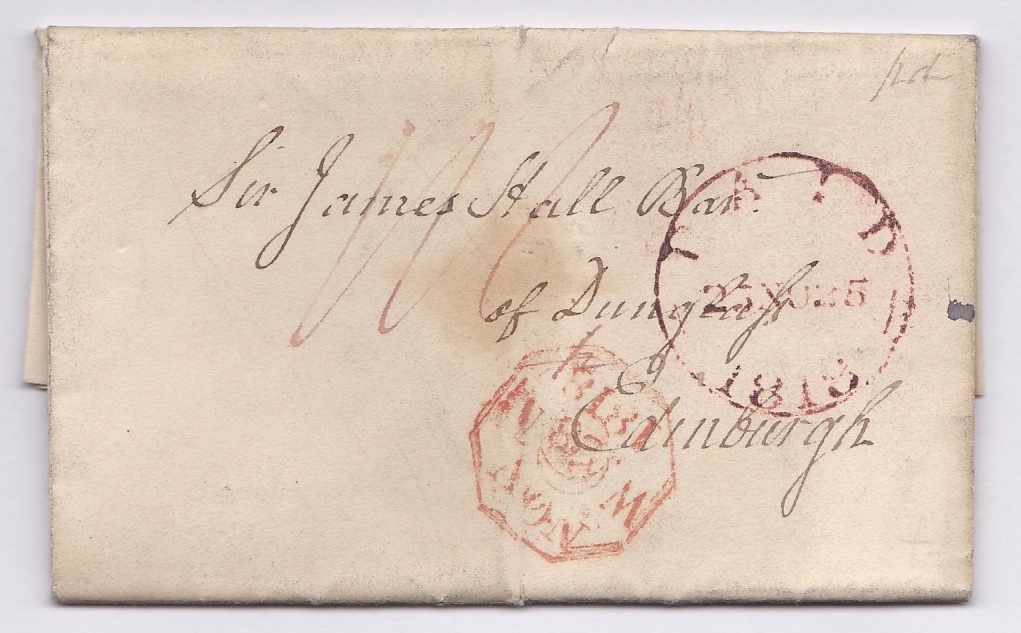 pd
Sir James Hall Bart.
of Dunglass
Edinburgh
PAID
25 NO 25
1813
NOV